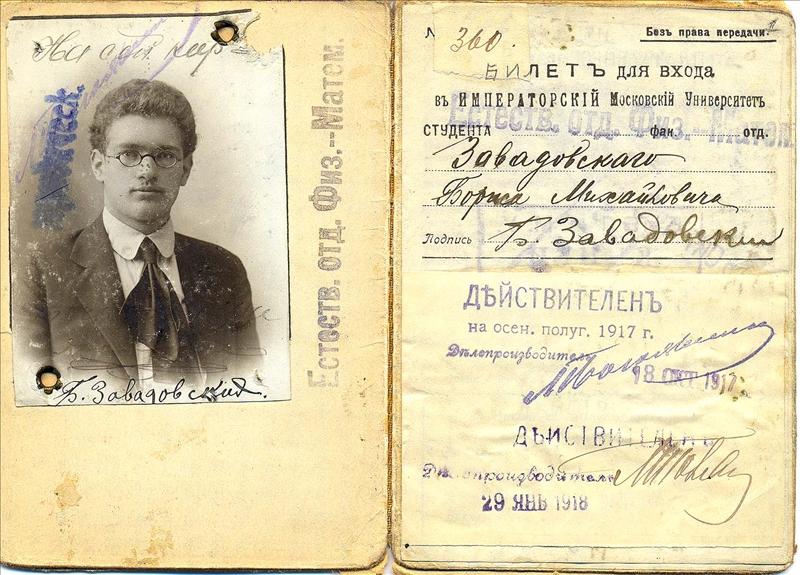 На
Б. Завадовский.
Естеств. отд. Физ.-Матем.
№ 360. Безъ права передачи.
БИЛЕТЪ для входа
въ ИМПЕРАТОРСКІЙ Московскій Университетъ
Естеств. отд. Физ.-Матем.
СТУДЕНТА фак. отд.
Завадовскаго
Бориса Михайловича
Подпись Б. Завадовский
ДѢЙСТВИТЕЛЕНЪ
на осен. полуг. 1917 г.
Дѣлопроизводитель
18 ОКТ 1917
ДѢЙСТВИТЕЛЕНЪ
Дѣлопроизводитель
29 ЯНВ 1918